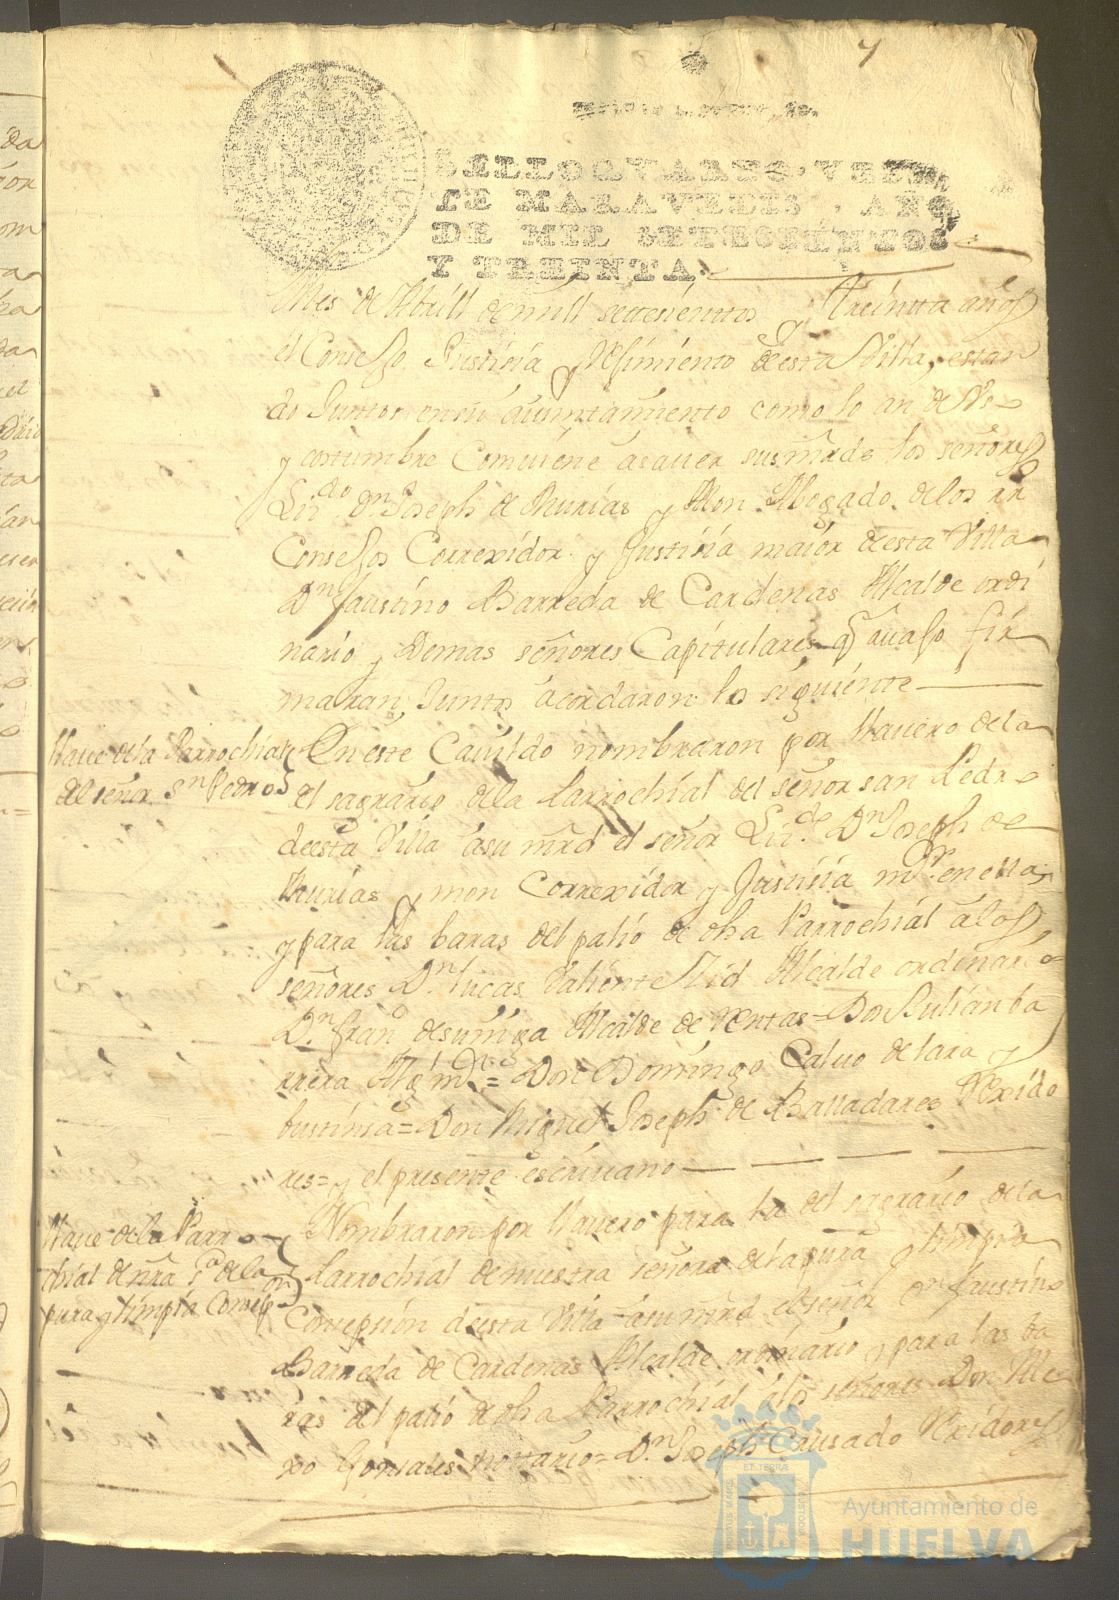 SELLO QVARTO, VEIN
TE MARAVEDIS, AÑO
DE MIL SETECIENTOS
Y TREINTA.
Mes de Abrill de mill settesienttos y treintta años
el Consejo Justisia y Rejimiento de esta Villa, estan
do Juntos en su aiuntamiento como lo an de Vso
y costumbre Combiene a sauer sus mrdes los señores
Lizdo Dn Joseph de Murias y Mon Abogado de los rr
Consejos Correxidor y Justisia maior de esta Villa
Dn faustino Barreda de Cardenas Alcalde ordi
nario y Demas señores Capitulares q auajo fir
maran, Juntos acordaron lo siguiente
llaue de la Parrochial
del señor Sn Pedro
En este Cauildo nombraron por llauero de la
el sagrario de la Parrochial del señor san Pedro
de esta Villa a su mrd el señor Lizdo Dn Joseph de
Murias y mon Correxidor y Justisia mor en ella
y para las baras del palio de dha Parrochial a los
señores Dn lucas Valiente Alcalde ordinario
Dn Frano de suniga Alcalde de Rentas = Don Julian ba
rrera Alg mor = Don Domingo Caluo de lara y
bustinsa = Don Miguel Joseph de Balladares Rexido
res = y el presente escriuano
llaue de la Parro
chial de nra sa de la
pura y limpia Consepon
Nombraron por llauero para la del sagrario de la
Parrochial de nuestra señora de la pura y limpia
Consepsion de esta Villa a su mrd el señor Dn faustino
Barreda de Cardenas Alcalde ordinario y para las ba
ras del palio de dha Parrochial a los señores Don
Gonsales = Dn Joseph Crusado Rexidores
Ayuntamiento de
HUELVA